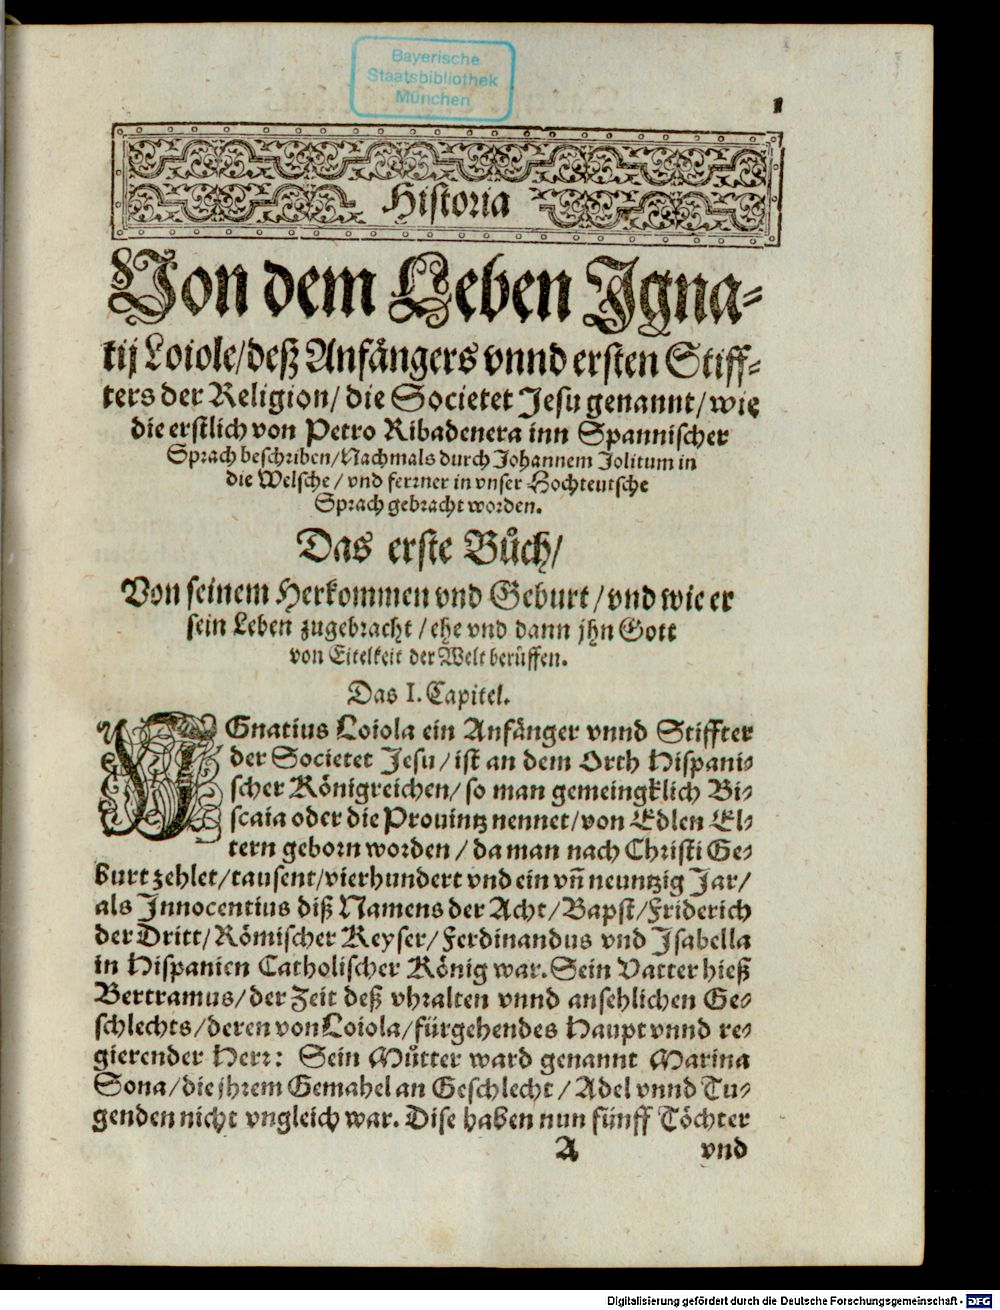 Bayerische
Staatsbibliothek
München
1
Historia
Von dem Leben Igna-
tij Loiole/deß Anfängers vnnd ersten Stiff-
ters der Religion/die Societet Jesu genannt/wie
die erstlich von Petro Ribadenera inn Spannischer
Sprach beschriben/Nachmals durch Johannem Jolitum in
die Welsche/vnd ferrner in vnser Hochteutsche
Sprach gebracht worden.
Das erste Bůch/
Von seinem Herkommen vnd Geburt/vnd wie er
sein Leben zugebracht/ehe vnd dann jhn Gott
von Eitelkeit der Welt berůffen.
Das I. Capitel.
IGnatius Loiola ein Anfänger vnnd Stiffter
der Societet Jesu/ist an dem Orth Hispani-
scher Königreichen/so man gemeingklich Bi-
scaia oder die Prouintz nennet/von Edlen El-
tern geborn worden/da man nach Christi Ge-
burt zehlet/tausent/vierhundert vnd ein vñ neuntzig Jar/
als Innocentius diß Namens der Acht/Bapst/Friderich
der Dritt/Römischer Keyser/Ferdinandus vnd Isabella
in Hispanien Catholischer König war. Sein Vatter hieß
Bertramus/der Zeit deß vhralten vnnd ansehlichen Ge-
schlechts/deren von Loiola/fürgehendes Haupt vnnd re-
gierender Herr: Sein Můtter ward genannt Marina
Sona/die jhrem Gemahel an Geschlecht/Adel vnnd Tu-
genden nicht vngleich war. Dise haben nun fünff Töchter
A vnd
Digitalisierung gefördert durch die Deutsche Forschungsgemeinschaft - DFG